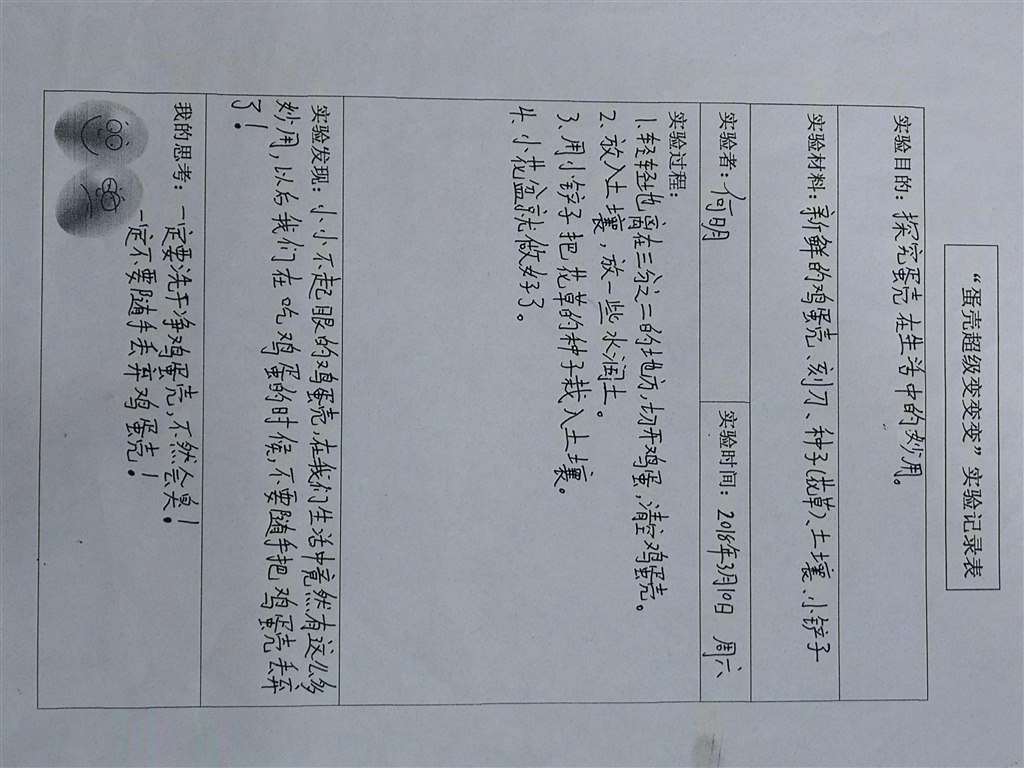 “蛋壳超级变变变”实验记录表
实验目的：探究蛋壳在生活中的妙用。
实验材料：新鲜的鸡蛋壳、刻刀、种子(花草)、土壤、小铲子
实验者：何明
实验时间：2018年3月10日 周六
实验过程：
1.轻轻地在三分之二的地方，切开鸡蛋，清空鸡蛋壳。
2、放入土壤，放一些水润土。
3、用小铲子把花草的种子栽入土壤。
4、小花盆就做好了。
实验发现：小小不起眼的鸡蛋壳，在我们生活中竟然有这么多
妙用，以后我们在吃鸡蛋的时候，不要随手把鸡蛋壳丢弃
了！
我的思考：一定要洗干净鸡蛋壳，不然会臭！
一定不要随手丢弃鸡蛋壳！